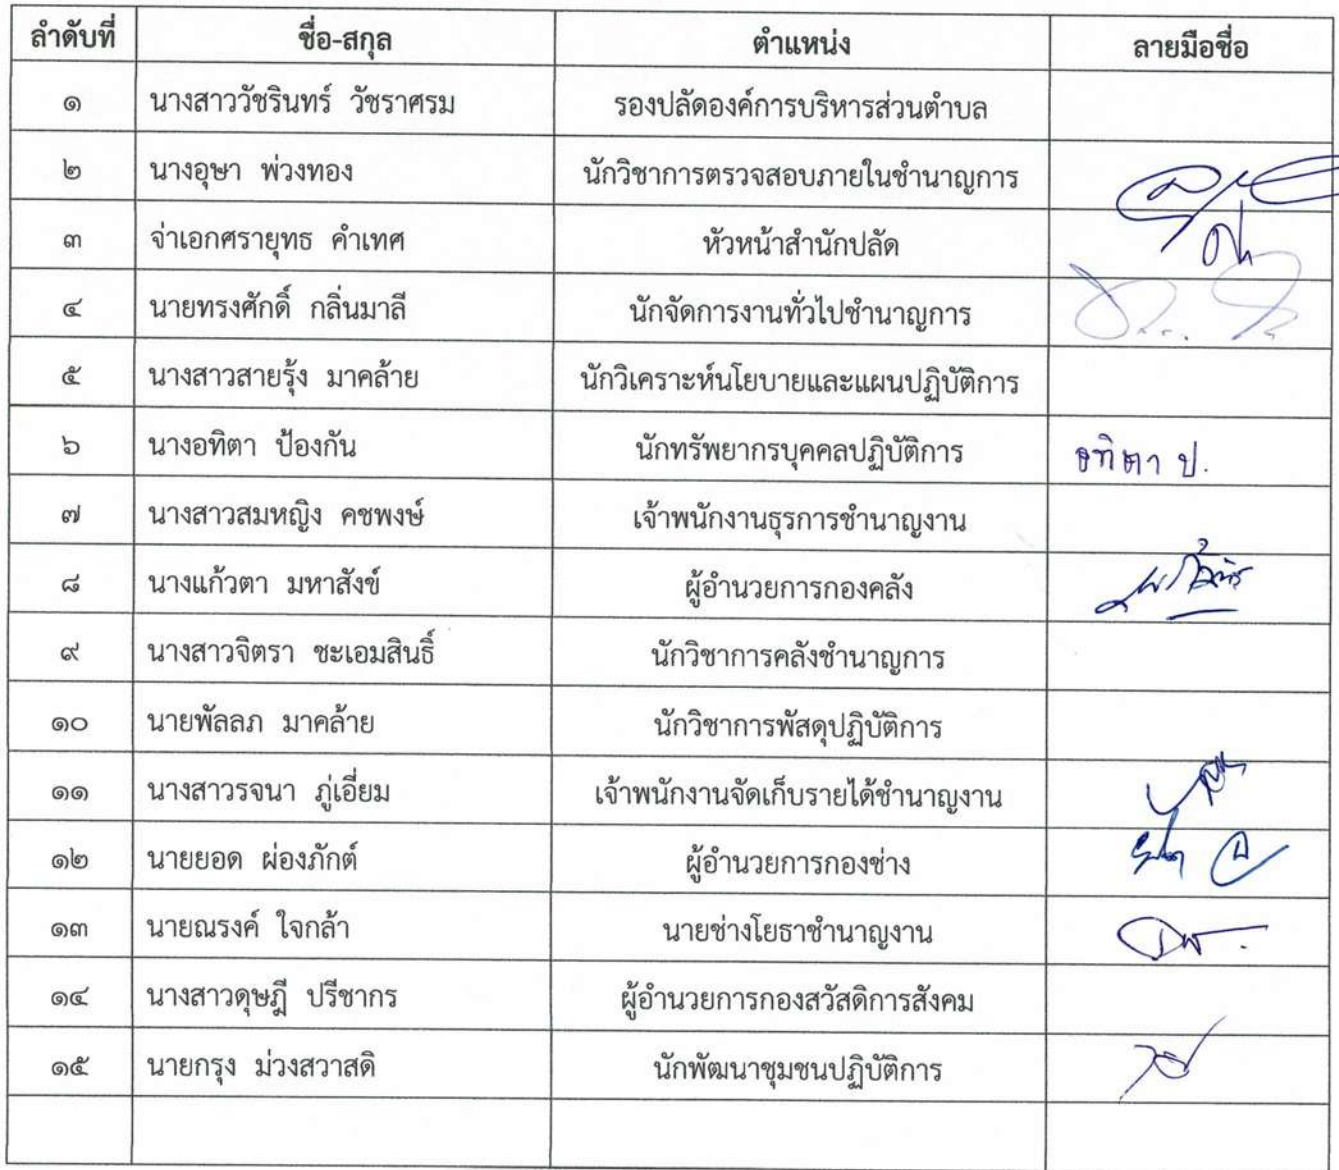 ลำดับที่ ชื่อ-สกุล ตำแหน่ง ลายมือชื่อ
๑ นางสาววัชรินทร์ วัชราศรม รองปลัดองค์การบริหารส่วนตำบล
๒ นางอุษา พ่วงทอง นักวิชาการตรวจสอบภายในชำนาญการ
๓ จ่าเอกศรายุทธ คำเทศ หัวหน้าสำนักปลัด
๔ นายทรงศักดิ์ กลิ่นมาลี นักจัดการงานทั่วไปชำนาญการ
๕ นางสาวสายรุ้ง มาคล้าย นักวิเคราะห์นโยบายและแผนปฏิบัติการ
๖ นางอทิตา ป้องกัน นักทรัพยากรบุคคลปฏิบัติการ อทิตา ป.
๗ นางสาวสมหญิง คชพงษ์ เจ้าพนักงานธุรการชำนาญงาน
๘ นางแก้วตา มหาสังข์ ผู้อำนวยการกองคลัง
๙ นางสาวจิตรา ชะเอมสินธิ์ นักวิชาการคลังชำนาญการ
๑๐ นายพัลลภ มาคล้าย นักวิชาการพัสดุปฏิบัติการ
๑๑ นางสาวรจนา ภู่เอี่ยม เจ้าพนักงานจัดเก็บรายได้ชำนาญงาน
๑๒ นายยอด ผ่องภักต์ ผู้อำนวยการกองช่าง
๑๓ นายณรงค์ ใจกล้า นายช่างโยธาชำนาญงาน
๑๔ นางสาวดุษฎี ปรีชากร ผู้อำนวยการกองสวัสดิการสังคม
๑๕ นายกรุง ม่วงสวาสดิ นักพัฒนาชุมชนปฏิบัติการ